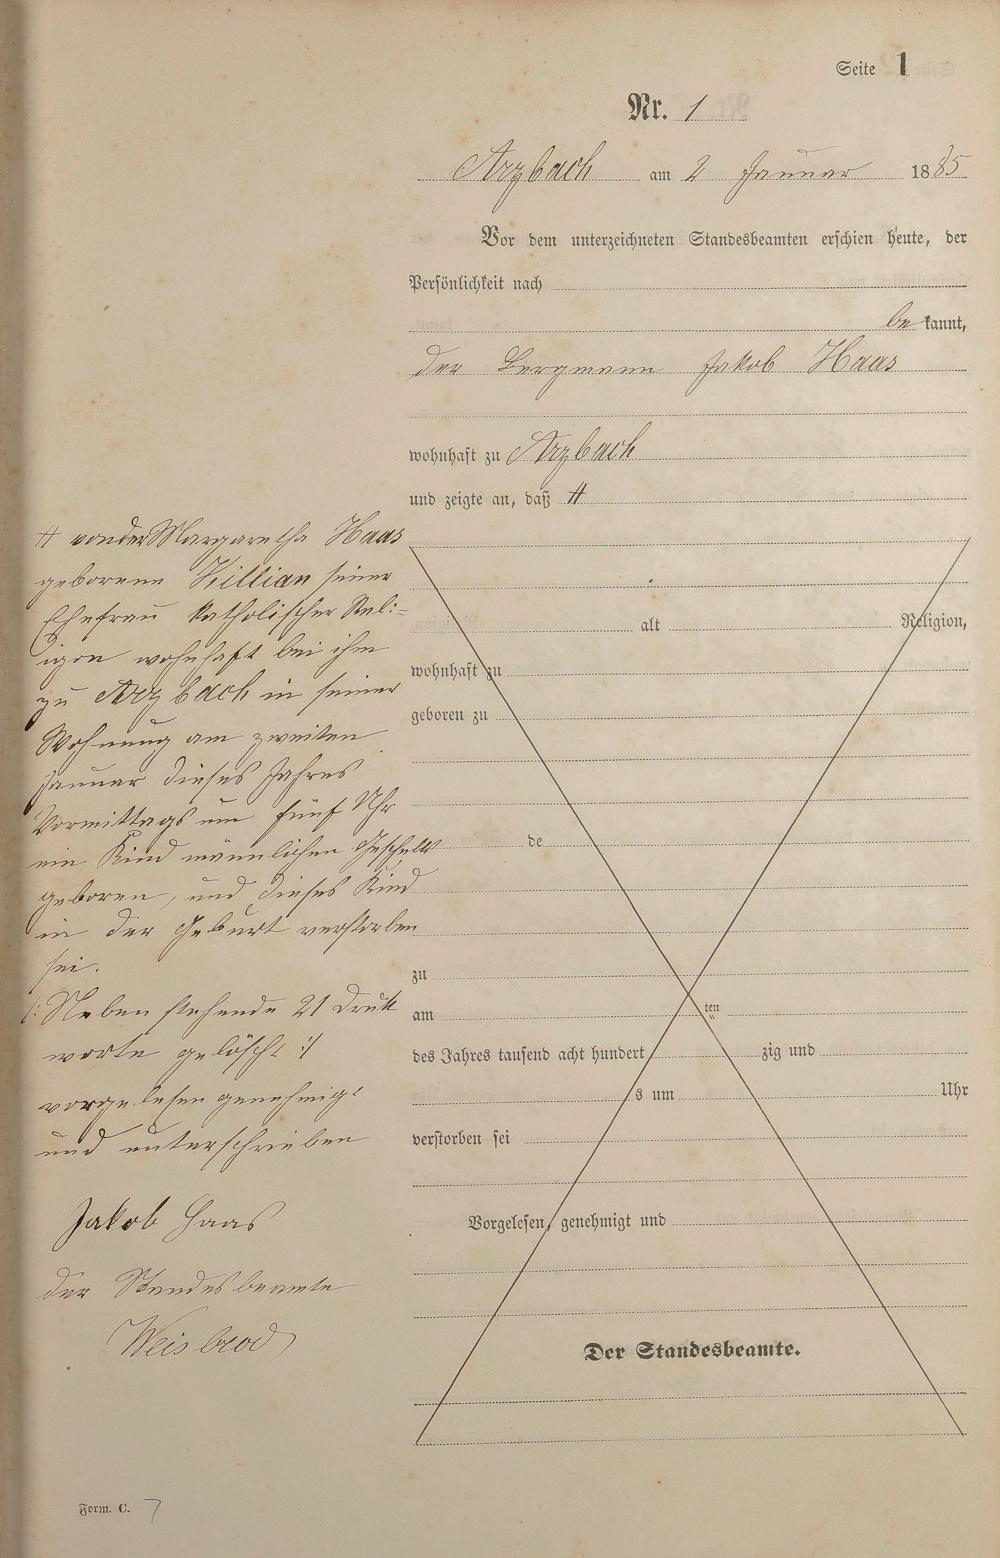 Seite 1
Nr. 1
Arzbach am 2 Januar 1885
Vor dem unterzeichneten Standesbeamten erschien heute, der
Persönlichkeit nach
bekannt,
der Bergmann Jakob Haas
wohnhaft zu Arzbach
und zeigte an, daß #
# von der Margaretha Haas
geborene Killian seiner
Ehefrau katholischer Reli-
igon wohnhaft bei ihm
zu Arzbach in seiner
Wohnung am zweiten
Januar dieses Jahres
Vormittags um fünf Uhr
ein Kind männlichen Geschlechts
geboren, und dieses Kind
in der Geburt verstorben
sei.
/: Neben stehende 21 Druck
worte gelöscht :/
vorgelesen genehmigt
und unterschrieben
Jakob Haas
der Standesbeamte
Weisbrod
alt Religion,
wohnhaft zu
geboren zu
de
zu
am ten
des Jahres tausend acht hundert zig und
s um Uhr
verstorben sei
Vorgelesen, genehmigt und
Der Standesbeamte.
Form. C. 7